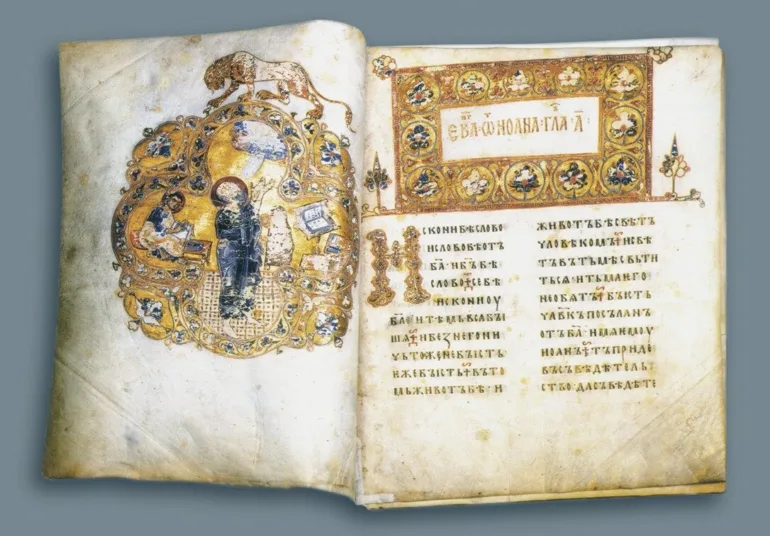 ЕВА · ѾИОАНА · ГЛА · А ·
ИСКОНИБѢСЛОВО
ИСЛОВОБѢОТЪ
БА҃·ИБЪ҃БѢ
СЛОВО⁘СЕБѢ
ИСКОНИОУ
БА҃·ИТѢМЬВСꙖБЫ
ШѦ⁘ИБЕЗНЕГОНИ
ЧЬТОЖЕНЕБЫСТЬ
ѤЖЕБЫСТЬ⁘ВЪТО
МЬЖИВОТЪБѢ·И
ЖИВОТЪБѢСВѢТЪ
ЧЛОВѢКОМЪ⁘ИСВѢ
ТЪВЪТЬМѢСВЬТИ
ТЬСѦ·ИТЬМАѤГО
НЕОБѦТЪ⁘БЫСТЬ
ЧЛ҃ВКЪПОСЪЛАНЪ
ОТЪБА҃·ИМАѤМОУ
ИОАНЪ⁘ТЪПРИДЕ
ВЪСЪВѢДѢТЕЛЬ
СТВО·ДАСЪВѢДѢТЕ